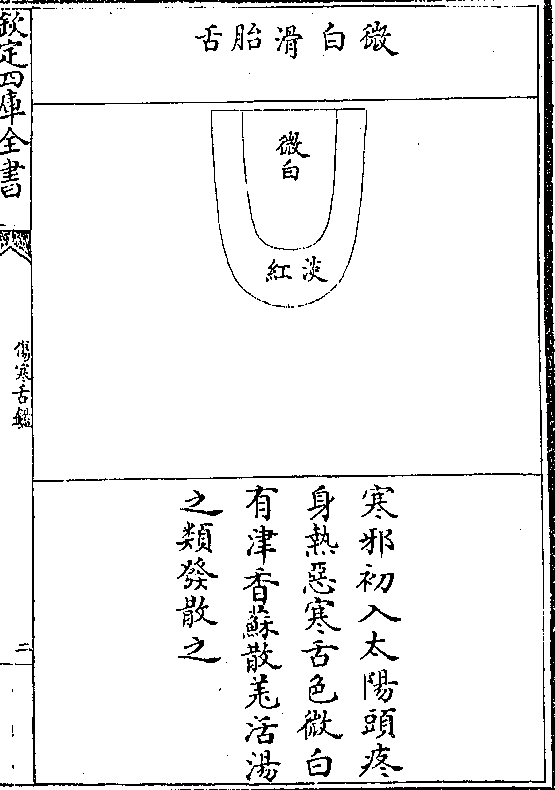 微白滑胎舌
微白
淡紅
寒邪初入太陽頭疼
身熱惡寒舌色微白
有津香蘇散羌活湯
之類發散之
欽定四庫全書
傷寒舌鑑
二